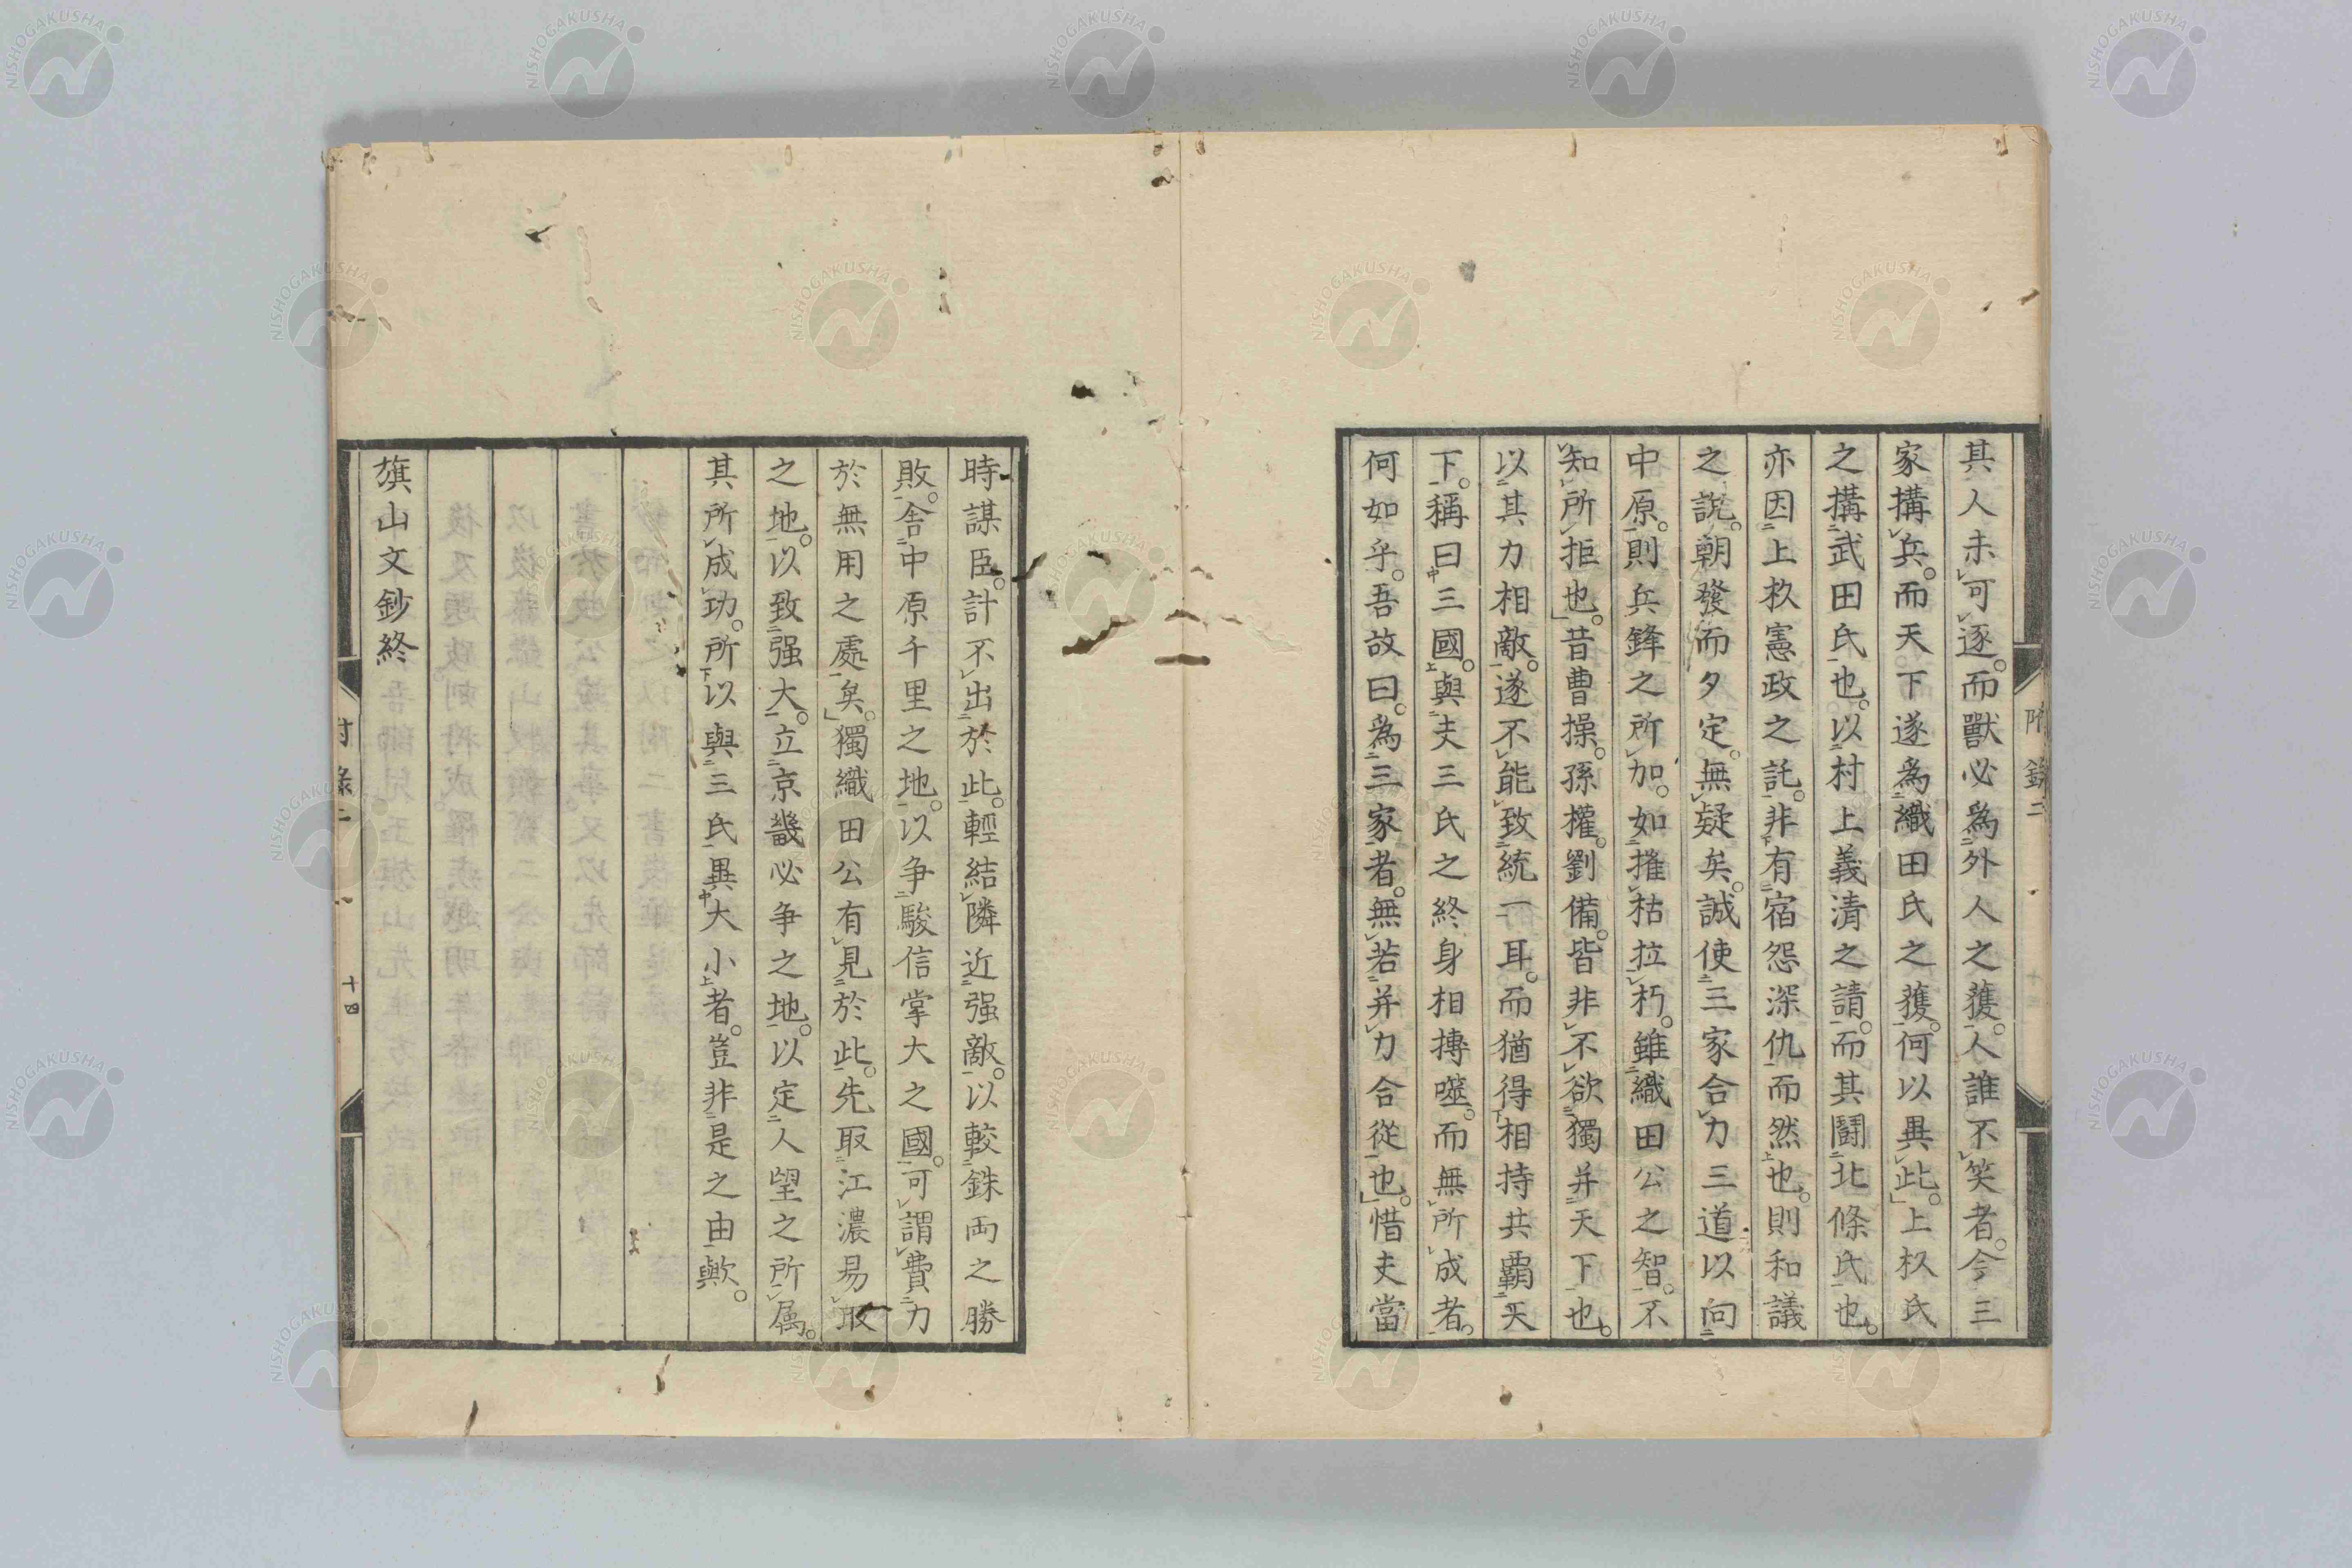 其人未可逐。而獸必爲外人之獲。人誰不笑者。今三
家搆兵。而天下遂爲織田氏之獲。何以異此。上杦氏
之搆武田氏也。以村上義淸之請。而其鬪北條氏也。
亦因上杦憲政之託。非有宿怨深仇而然也。則和議
之說。朝發而夕定。無疑矣。誠使三家合力三道以向
中原。則兵鋒之所加。如摧枯拉朽。雖織田公之智。不
知所拒也。昔曹操。孫權。劉備。皆非不欲獨并天下也。
以其力相敵。遂不能致統一耳。而猶得相持共霸天
下。稱曰三國。與夫三氏之終身相搏噬。而無所成者。
何如乎。吾故曰。爲三家者。無若并力合從也。惜夫當
附錄二
時謀臣。計不出於此。輕結隣近强敵。以較銖両之勝
敗。舍中原千里之地。以争駿信掌大之國。可謂費力
於無用之處矣。獨織田公有見於此。先取江濃易取
之地。以致强大。立京畿必争之地。以定人望之所属。
其所成功。所以與三氏異大小者。豈非是之由歟。
旗山文鈔終
附錄二
十四
NISHOGAKUSHA